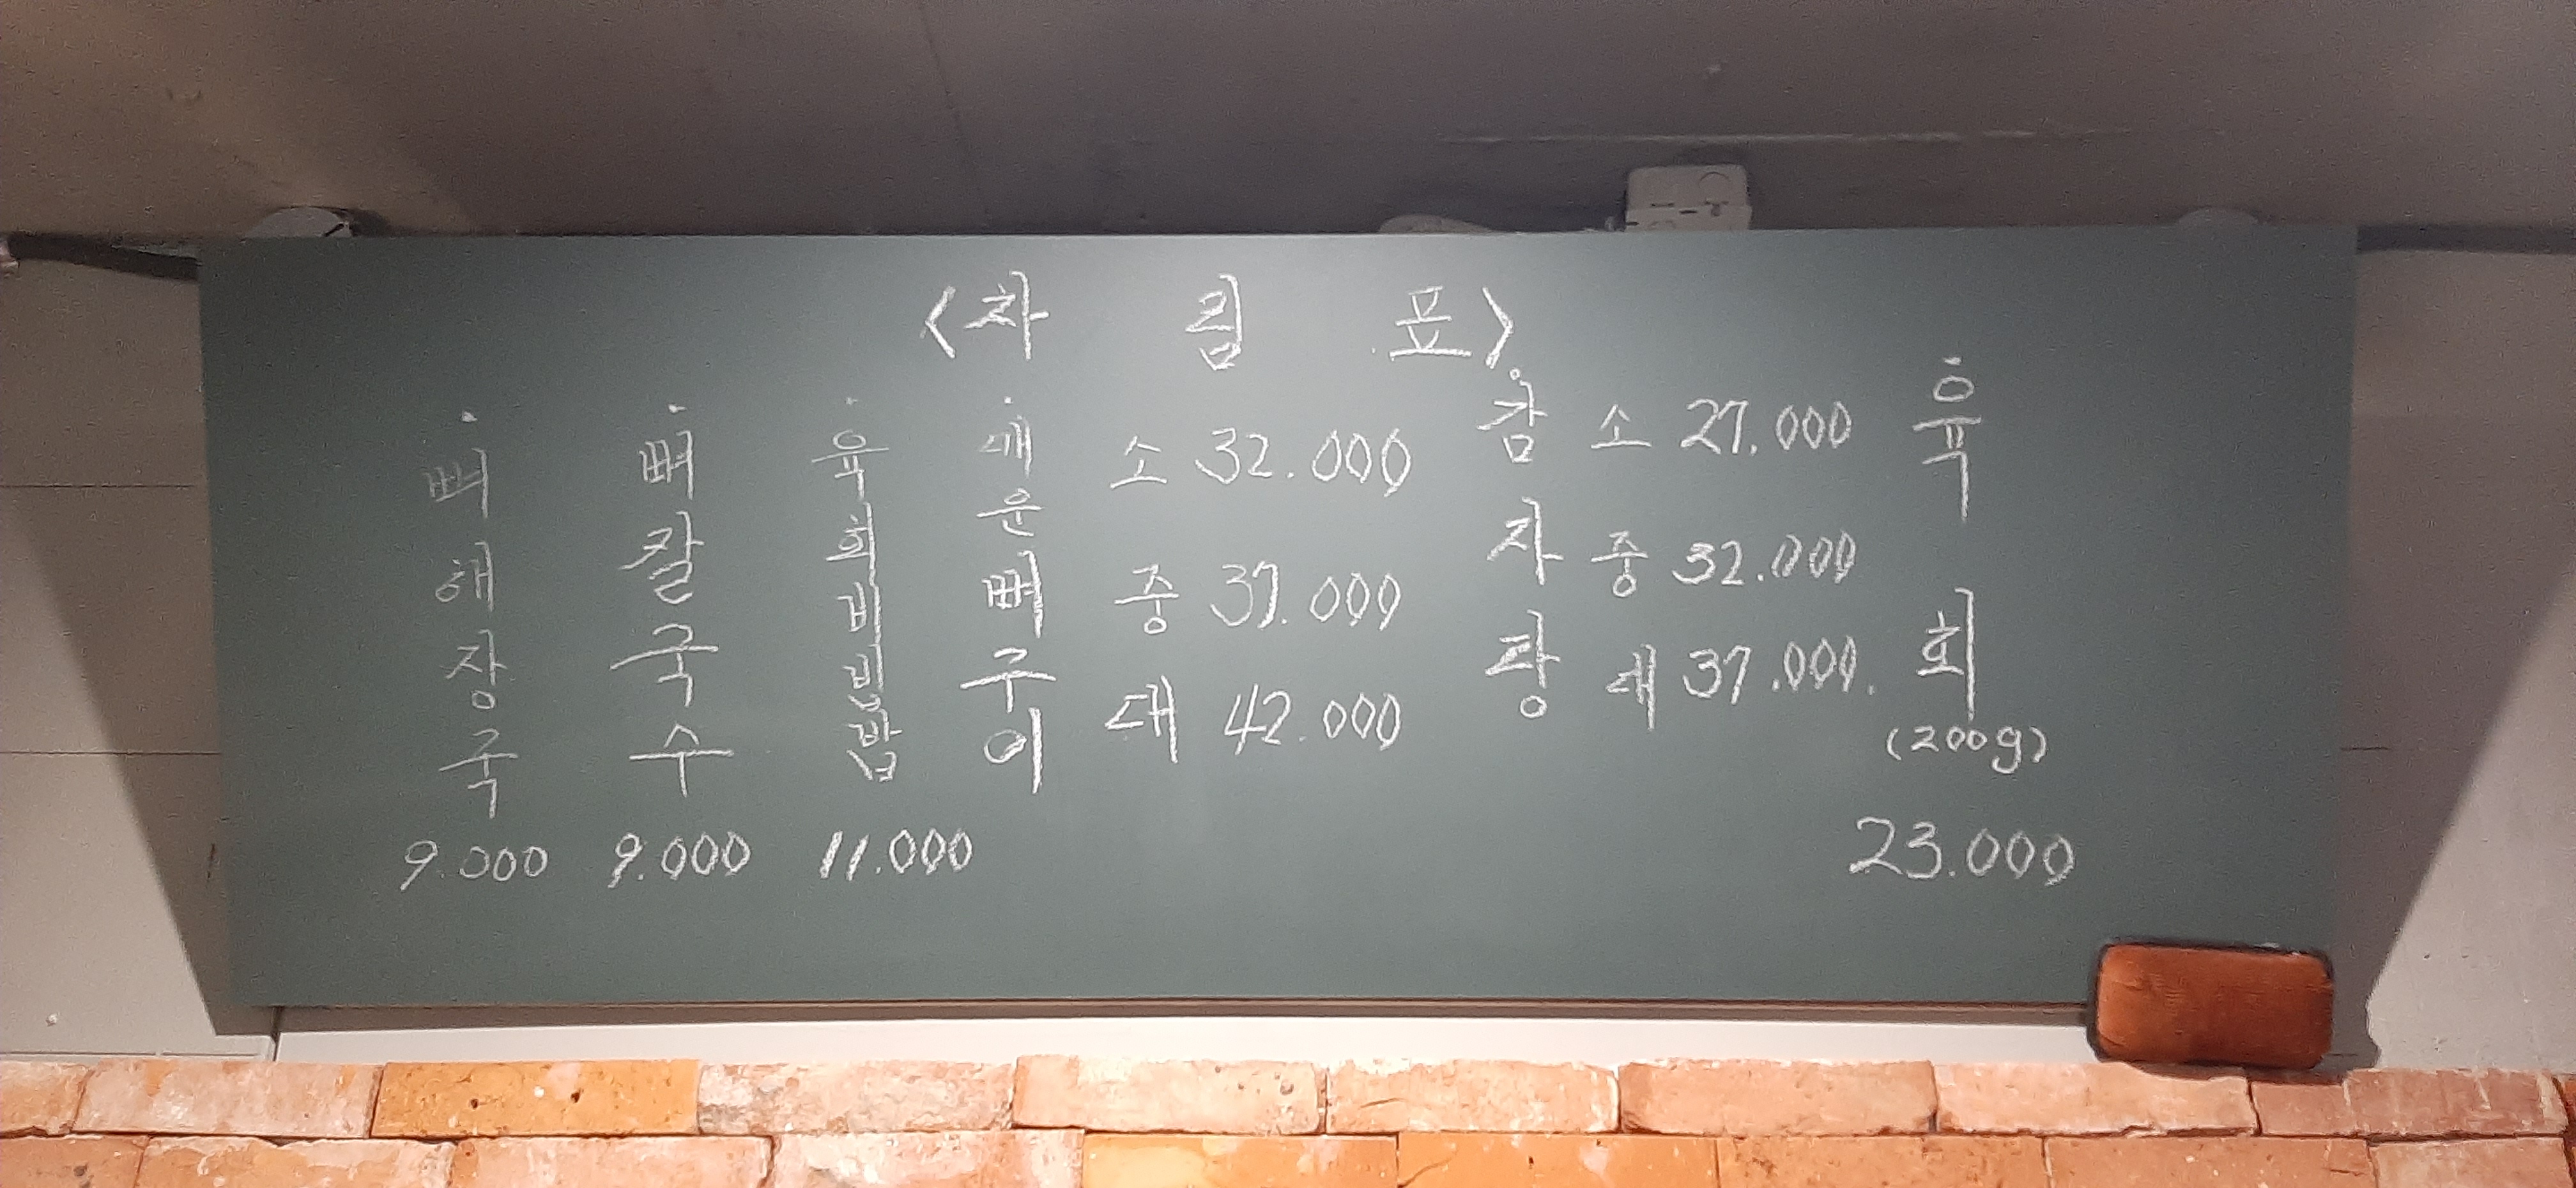 <차 림 표>
뼈해장국
9.000
뼈칼국수
9.000
육회비빔밥
11.000
매운뼈구이
소 32.000
중 37.000
대 42.000
감자탕
소 27.000
중 32.000
대 37.000.
육회
(200g)
23.000